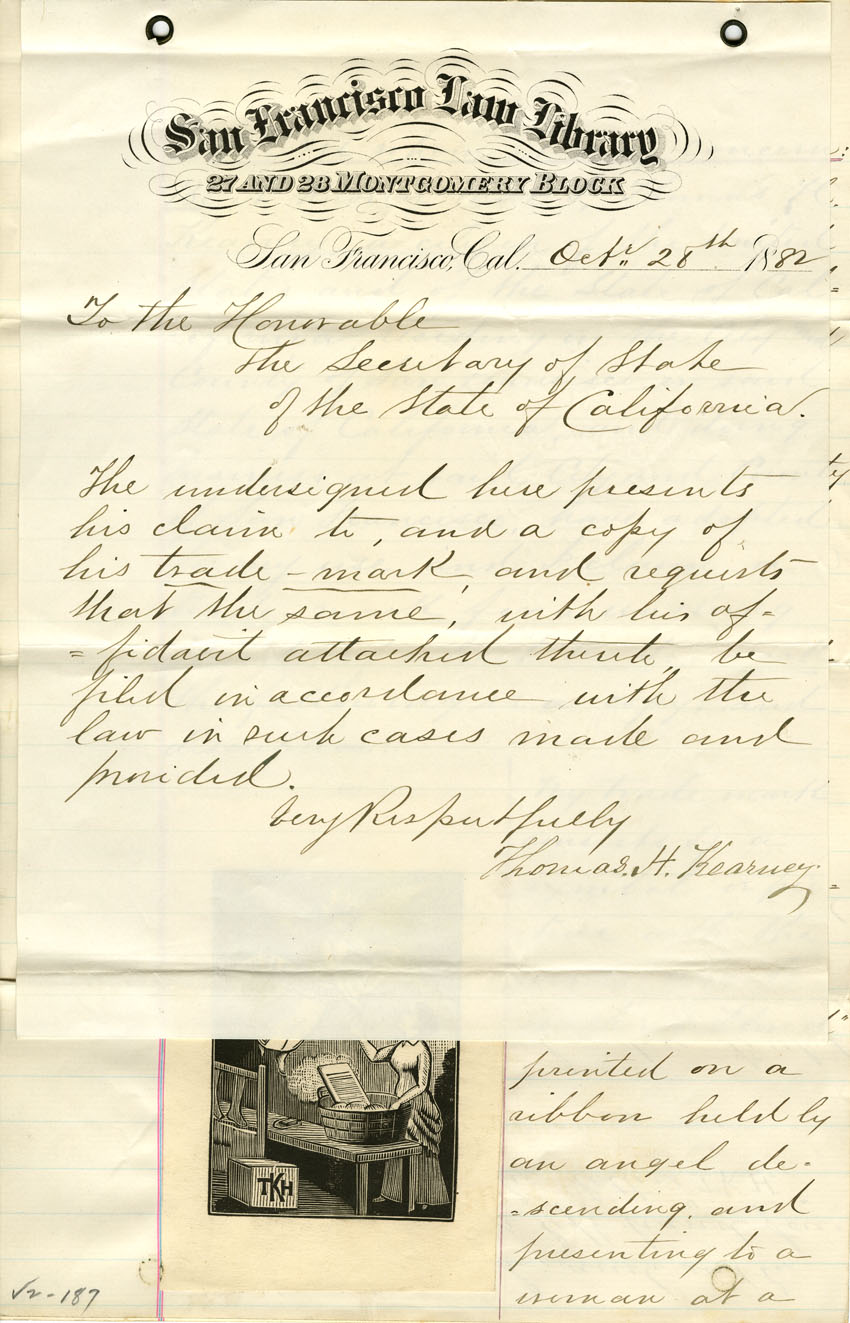 San Francisco Law Library
27 AND 28 MONTGOMERY BLOCK
San Francisco, Cal. Octr. 28th 1882
To the Honorable
The Secretary of State
of the State of California.
The undersigned here presents
his claim to, and a copy of
his trade-mark, and requests
that the same, with his af=
=fidavit attached thereto, be
filed in accordance with the
law in such cases made and
provided.
Very Respectfully
Thomas. H. Kearney
printed on a
ribbon held by
an angel de-
=scending, and
presenting to a
woman at a
TKH
√2-187